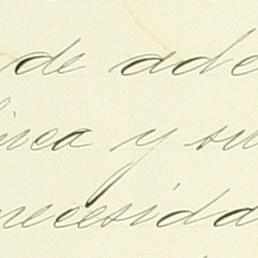 de ade
inea y su
necesida